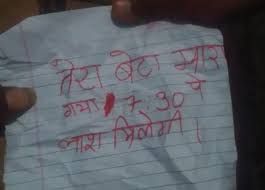 तेरा बेटा मारा
गया 7.30 पे
लाश मिलेगी।